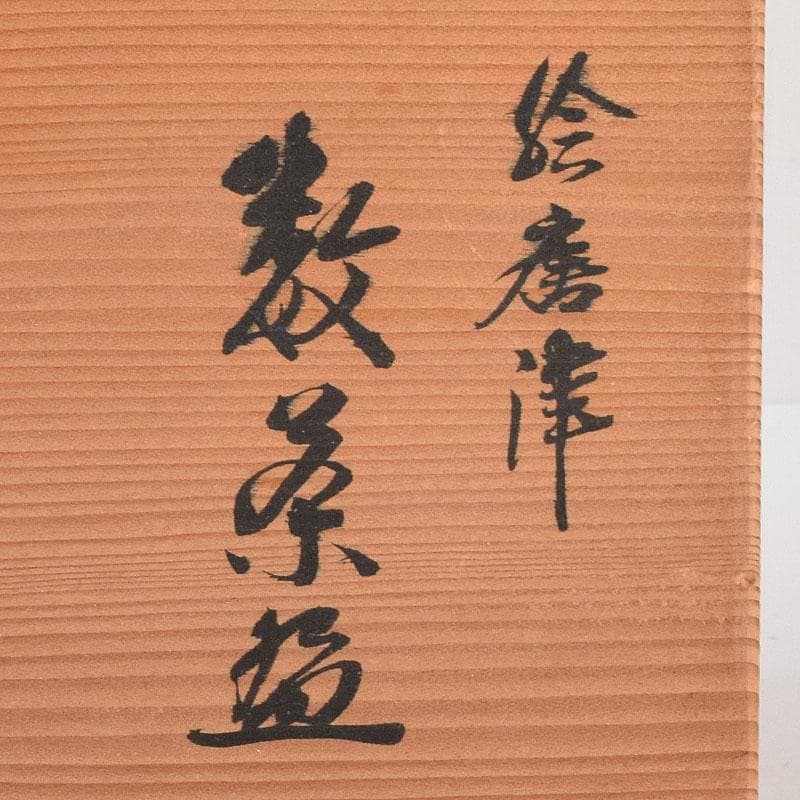 絵唐津
数茶盌